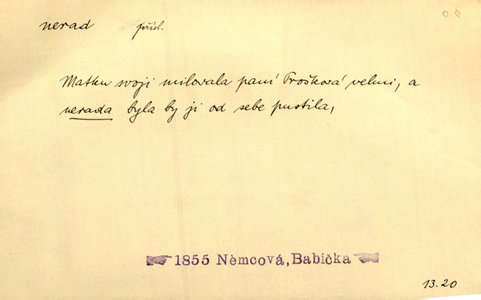 nerad přísl.
Matku svoji milovala paní Prošková velmi, a
nerada byla by ji od sebe pustila,
1855 Němcová, Babička
13.20